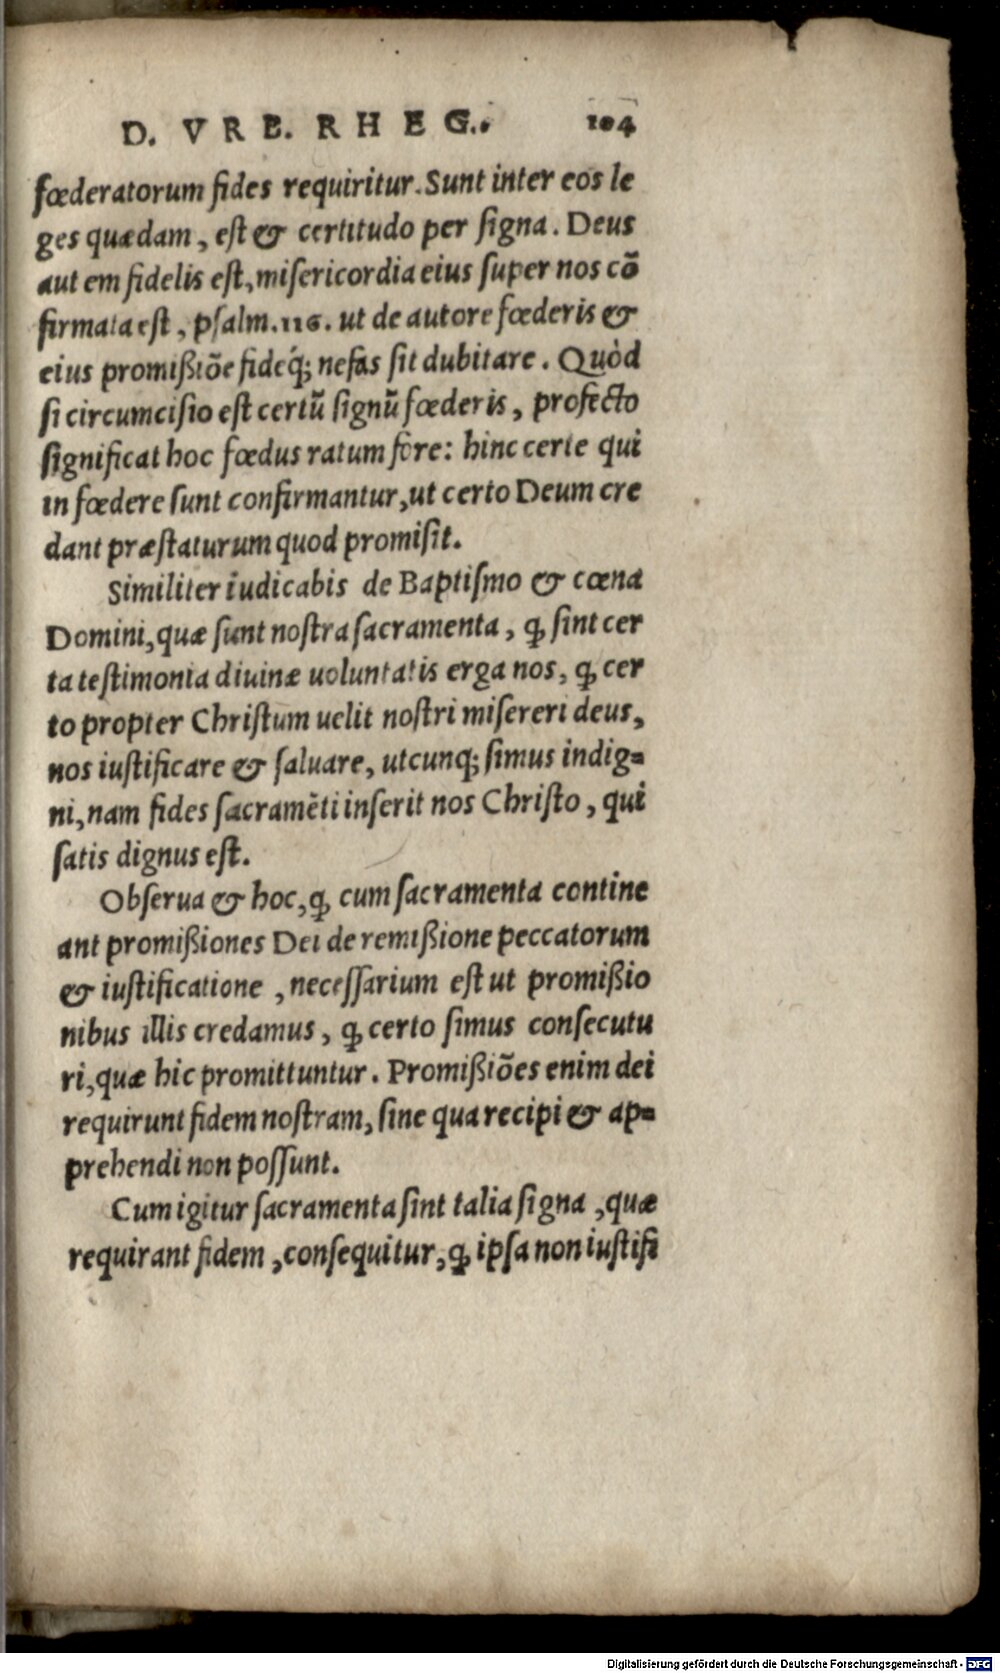 D. VRB. RHEG. 104
fœderatorum fides requiritur. Sunt inter eos le
ges quædam, est & certitudo per signa. Deus
autem fidelis est, misericordia eius super nos cõ
firmata est, psalm. 116. ut de autore fœderis &
eius promißiõe fideq́; nefas sit dubitare. Quòd
si circumcisio est certũ signũ fœderis, profecto
significat hoc fœdus ratum fore: hinc certe qui
in fœdere sunt confirmantur, ut certo Deum cre
dant præstaturum quod promisit.
Similiter iudicabis de Baptismo & cœna
Domini, quæ sunt nostra sacramenta, ꝙ sint cer
ta testimonia divinæ uoluntatis erga nos, ꝙ cer
to propter Christum uelit nostri misereri deus,
nos iustificare & saluare, utcunq; simus indig=
ni, nam fides sacramẽti inserit nos Christo, qui
satis dignus est.
Observa & hoc, ꝙ cum sacramenta contine
ant promißiones Dei de remißione peccatorum
& iustificatione, necessarium est ut promißio
nibus illis credamus, ꝙ certo simus consecutu
ri, quæ hic promittuntur. Promißiões enim dei
requirunt fidem nostram, sine qua recipi & ap=
prehendi non possunt.
Cum igitur sacramenta sint talia signa, quæ
requirant fidem, consequitur, ꝙ ipsa non iustifi
Digitalisierung gefördert durch die Deutsche Forschungsgemeinschaft - DFG